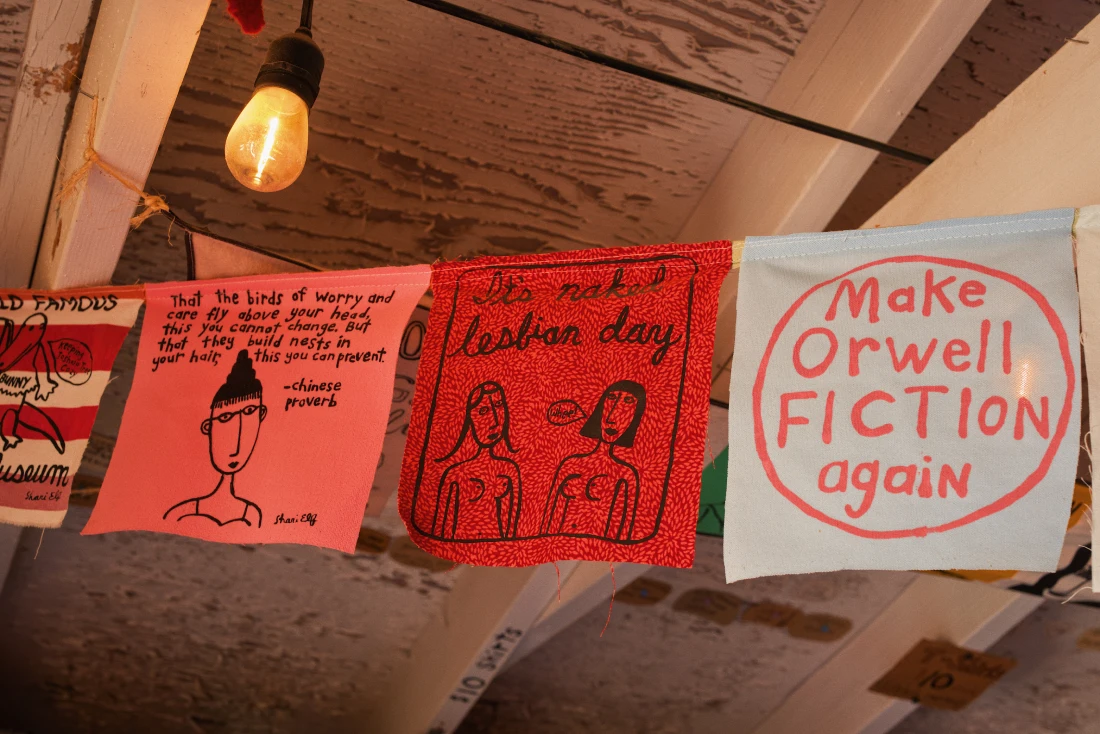 LD FAMOUS
BUNNY
useum
Shari Elf
That the birds of worry and
care fly above your head,
this you cannot change. But
that they build nests in
your hair, this you can prevent.
-chinese
proverb
Shari Elf
It's naked
lesbian day
Make
Orwell
FICTION
again
$10 SHIRTS
10